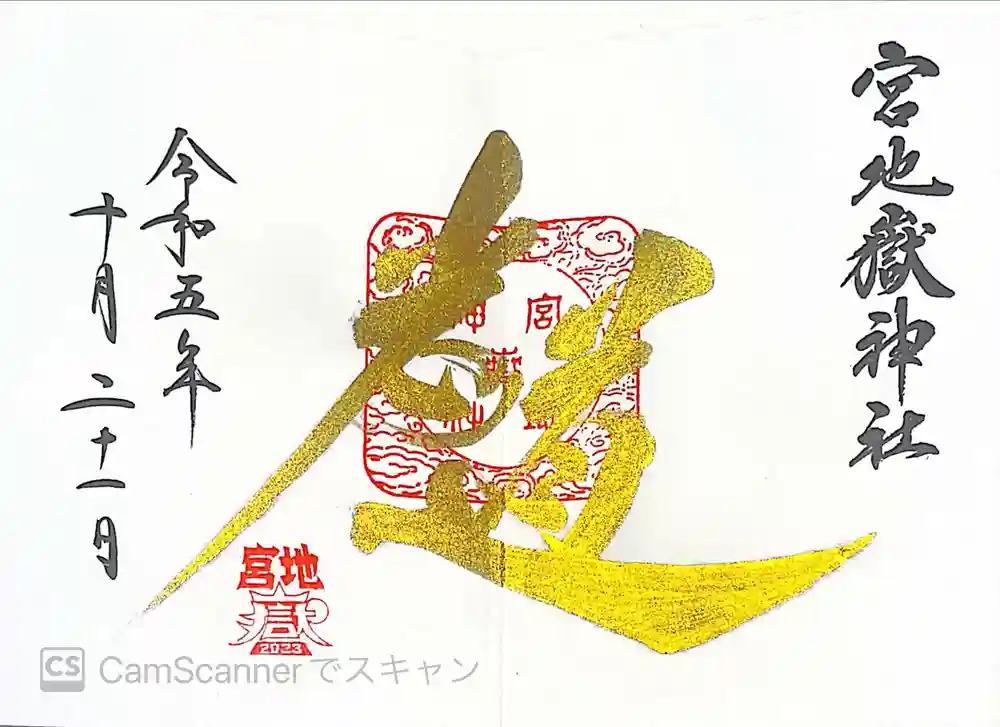 宮地嶽神社
令和五年
十月二十一日
宮地
嶽
2023
CS CamScanner でスキャン